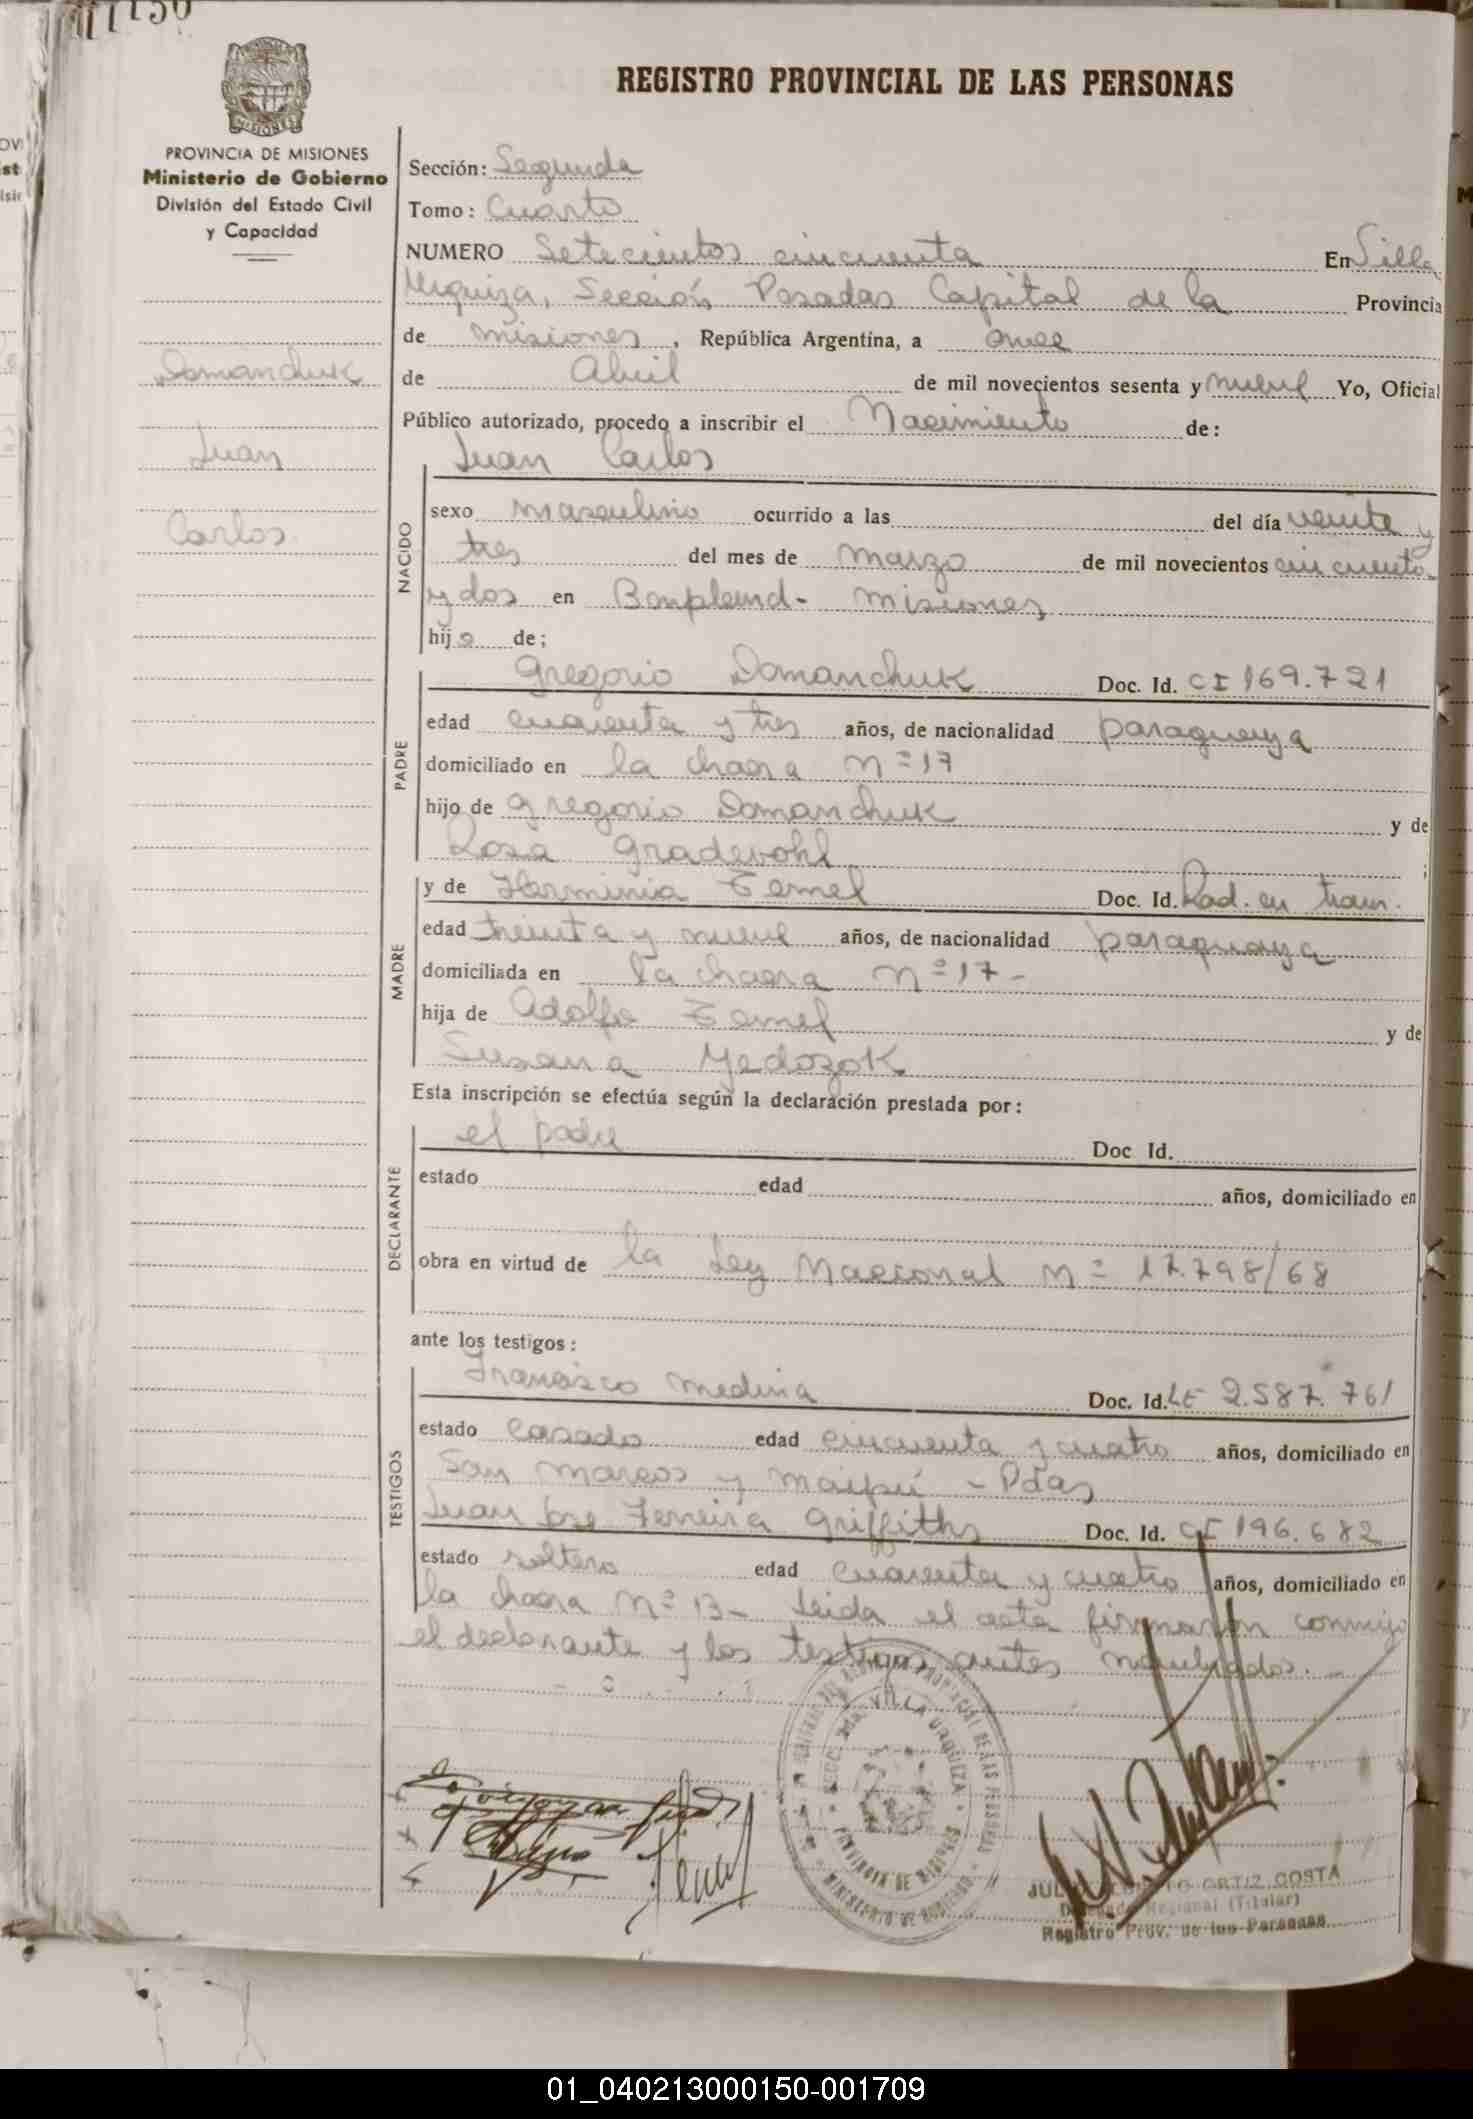 REGISTRO PROVINCIAL DE LAS PERSONAS
MISIONES
PROVINCIA DE MISIONES
Ministerio de Gobierno
División del Estado Civil
y Capacidad
Domanchuk
Juan
Carlos
Sección: Segunda
Tomo: Cuarto
NUMERO Setecientos cincuenta En Villa
Urquiza, Sección Posadas Capital de la Provincia
de misiones, República Argentina, a once
de Abril de mil novecientos sesenta y nueve Yo, Oficial
Público autorizado, procedo a inscribir el Nacimiento de:
NACIDO
Juan Carlos
sexo masculino ocurrido a las del día veinte y
tres del mes de marzo de mil novecientos cincuenta
y dos en Bonpland - misiones
hijo de;
PADRE
Gregorio Domanchuk Doc. Id. CI 169.721
edad cuarenta y tres años, de nacionalidad paraguaya
domiciliado en la chacra nº 17
hijo de gregorio Domanchuk y de
Rosa Gradevohl ;
MADRE
y de Herminia Temel Doc. Id. Rad. en tram.
edad treinta y nueve años, de nacionalidad paraguaya
domiciliada en la chacra nº 17 -
hija de Adolfo Temel y de
Susana Yedozok
Esta inscripción se efectúa según la declaración prestada por:
DECLARANTE
el padre Doc Id.
estado edad años, domiciliado en
obra en virtud de la Ley Nacional nº 17.798/68
ante los testigos:
TESTIGOS
Francisco medina Doc. Id. LE 2.587.761
estado casado edad cincuenta y cuatro años, domiciliado en
San marcos y maipú - Pdas
Juan Jose Ferreira Griffiths Doc. Id. CI 196.682
estado soltero edad cuarenta y cuatro años, domiciliado en
la chacra nº 13 - Leida el acta firmaron conmigo
el declarante y los testigos antes nombrados. -
VILLA URQUIZA
PROVINCIA DE MISIONES
MINISTERIO DE GOBIERNO
ORTIZ COSTA
Delegado Regional (Titular)
Registro Prov. de las Personas
01_040213000150-001709